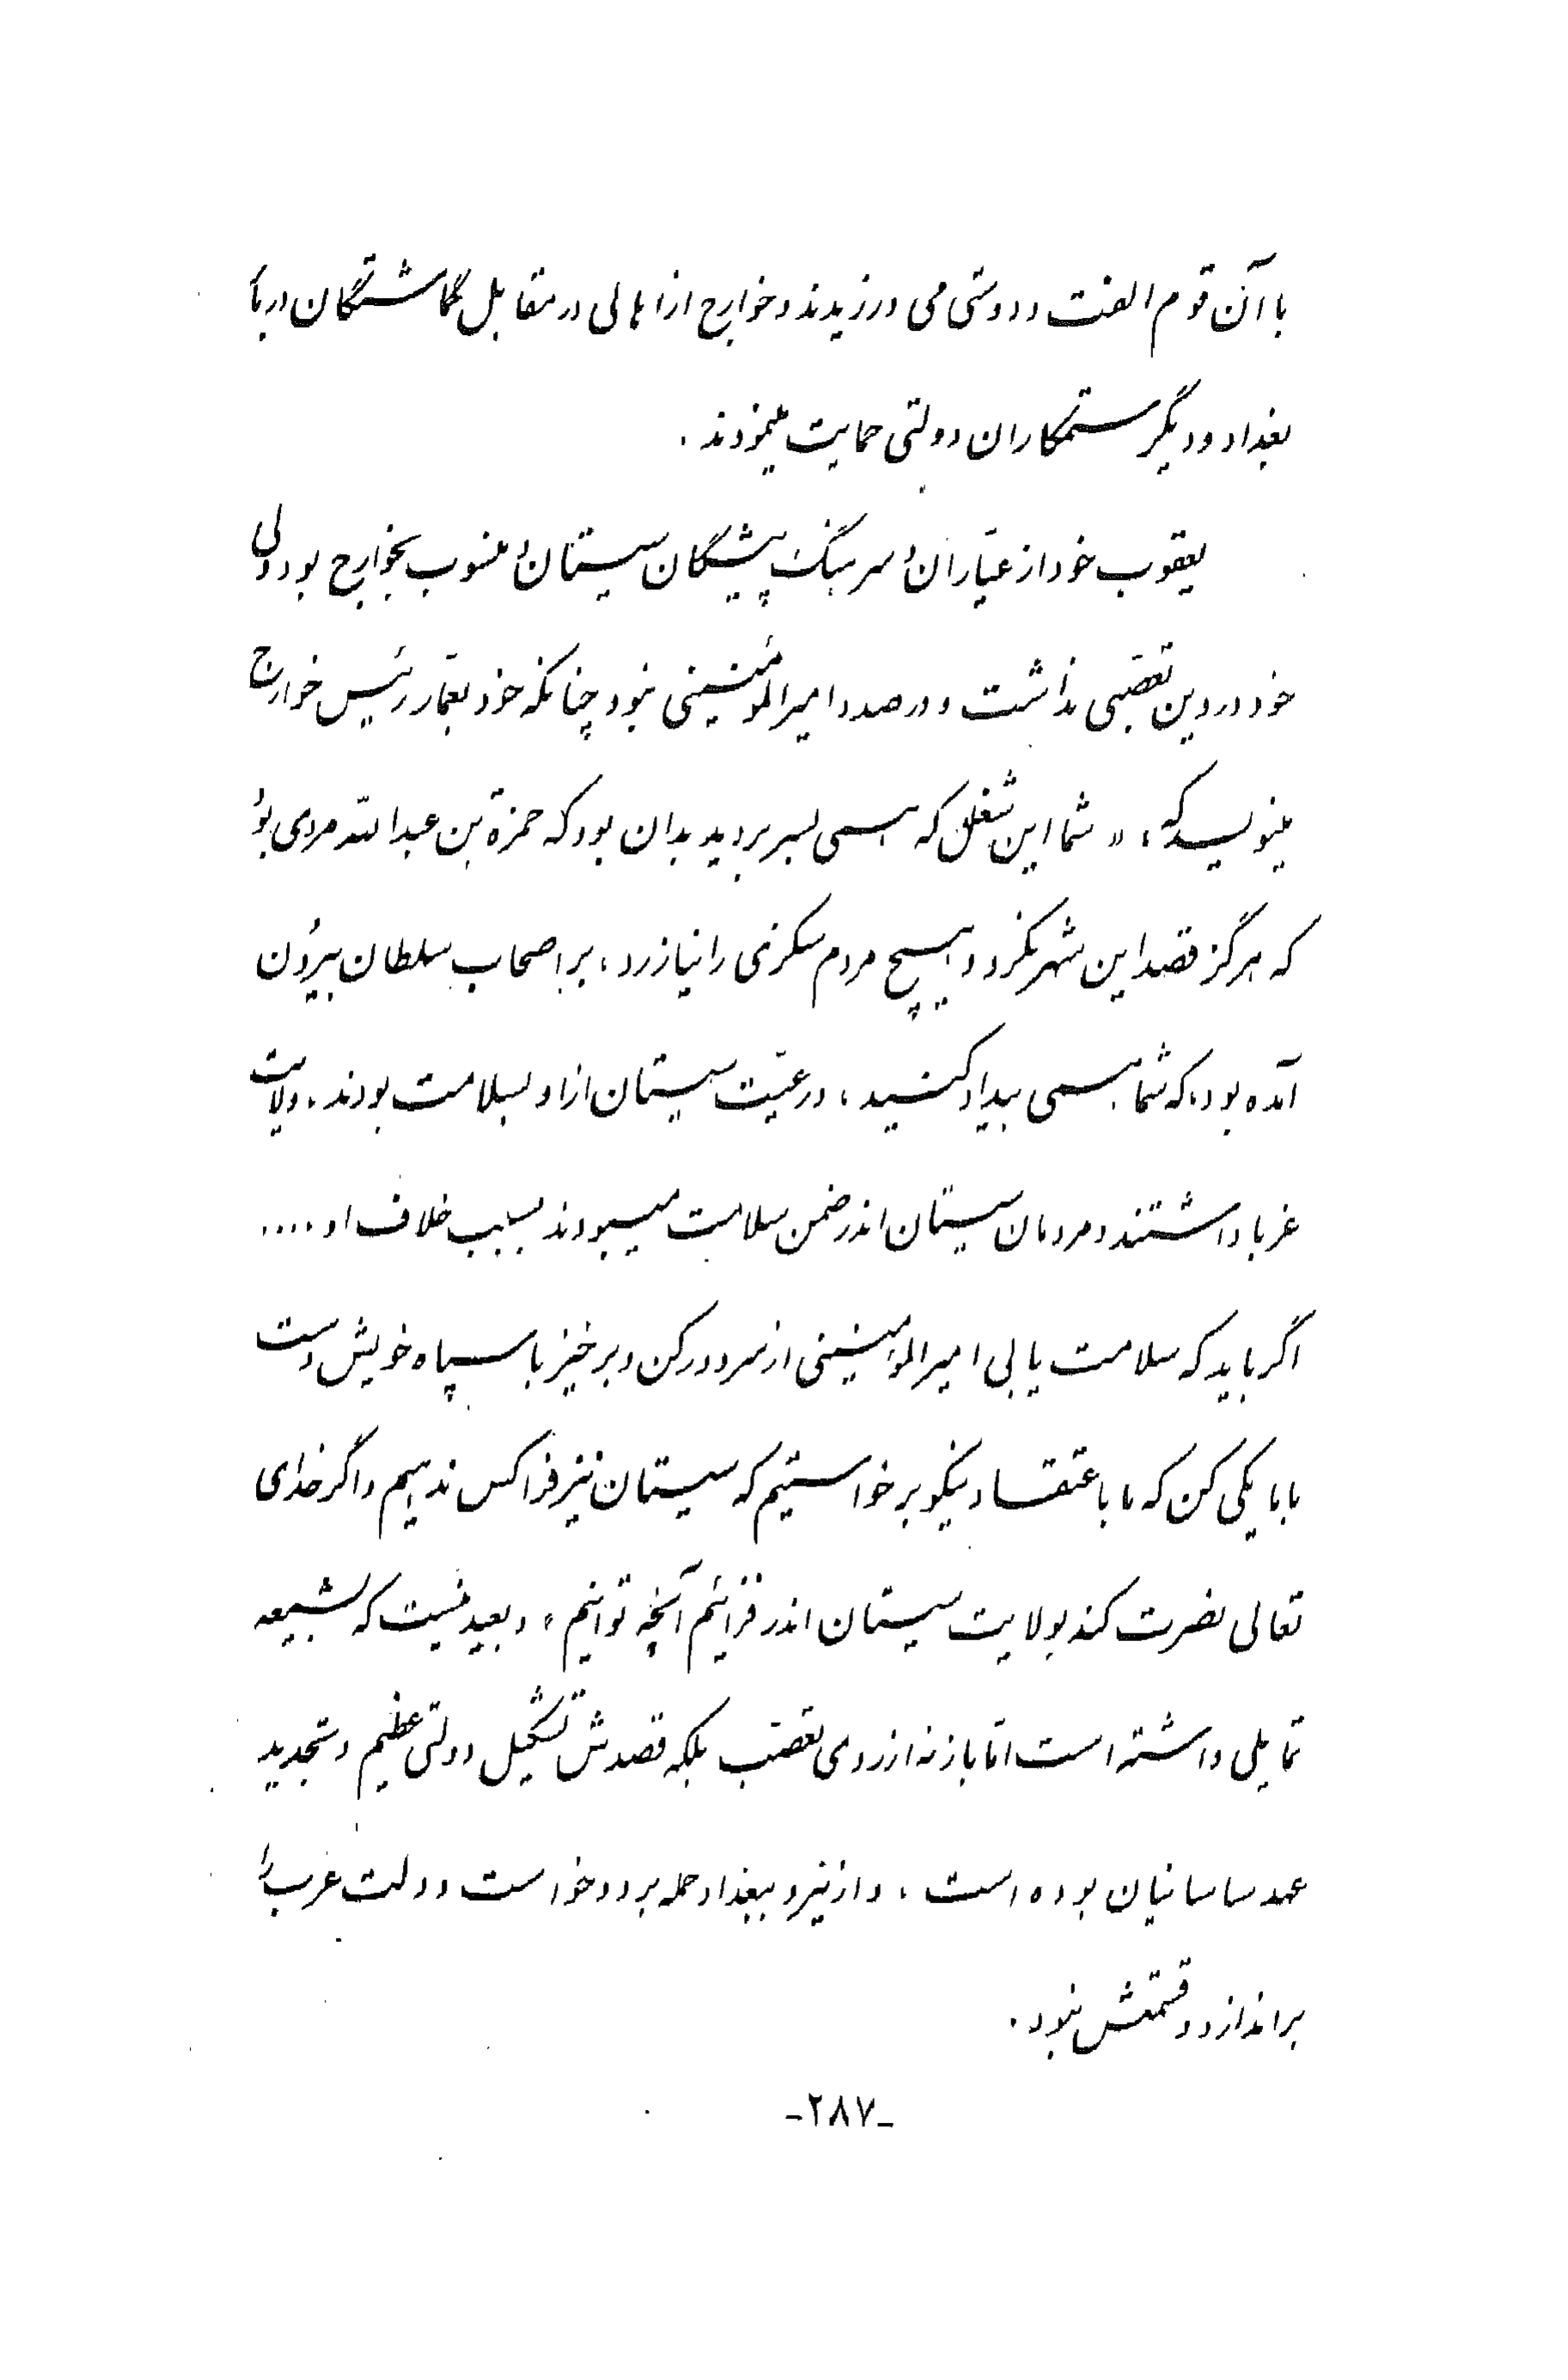 با آن قوم الفت و دوستی می ورزیدند و خوارج از اهالی در مقابل گماشتگان دربار
بغداد و دیگر ستمکاران دولتی حمایت مینمودند .
یعقوب خود از عیّاران و سرهنگ پیشگان سیستان و منسوب بخوارج بود ولی
خود در دین تعصّبی نداشت و در صدد امیرالمؤمنینی نبود چنانکه خود بعمّار رئیس خوارج
مینویسد که : « شما این شغل که همی بسر بردید بدان بود که حمزة بن عبدالله مردی بود
که هرگز قصد این شهر نکرد و هیچ مردم سگزی را نیازرد ، بر اصحاب سلطان بیرون
آمده بود ، که شما همی بیداد کنید ، و رعیّت سیستان از او بسلامت بودند . ولایت
غربا داشتند و مردمان سیستان اندر ضمن سلامت میبودند بسبب خلاف او ....
اگر باید که سلامت یابی امیرالمؤمنینی از سر دور کن و برخیز با سپاه خویش دست
با ما یکی کن که ما باعتقاد نیکو برخواستیم که سیستان نیز فرا کس ندهیم و اگر خدای
تعالی نصرت کند بولایت سیستان اندر فزائیم آنچه توانیم » و بعید نیست که بشیعه
تمایلی داشته است امّا باز نه از روی تعصّب بلکه قصدش تشکیل دولتی عظیم و تجدید
عهد ساسانیان بوده است ، و از نیرو ببغداد حمله برد و خواست دولت عرب را
براندازد و قسمتش نبود .
-۲۸۷-